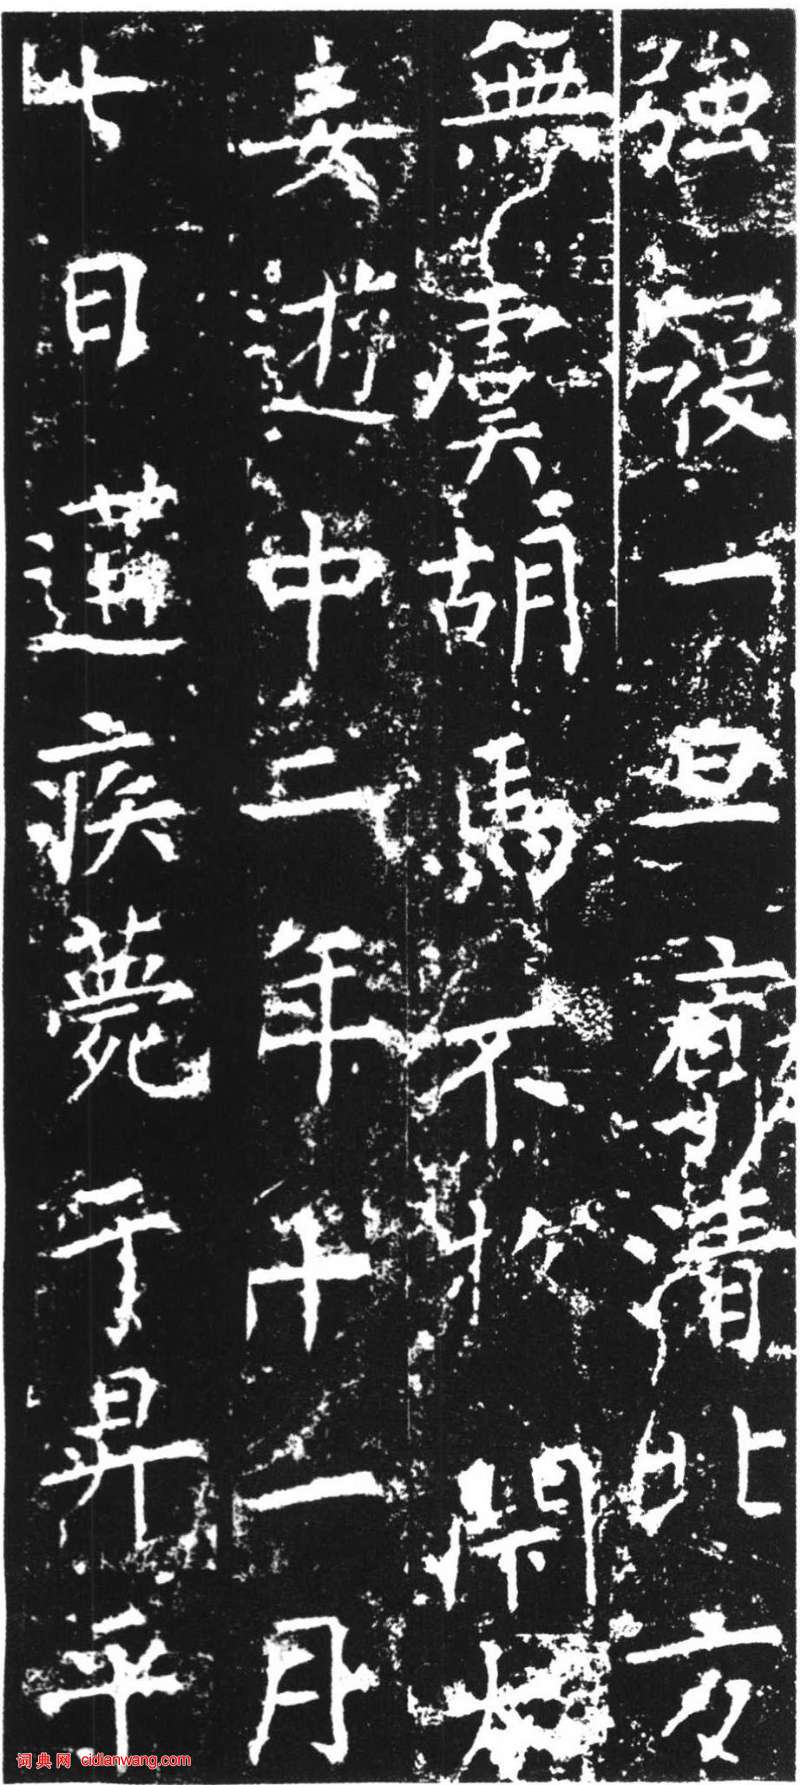 強一旦清北方
無虞胡馬不
妄遊中二年十一月
日遘疾薨于昇平
词典网 cidianwang.com